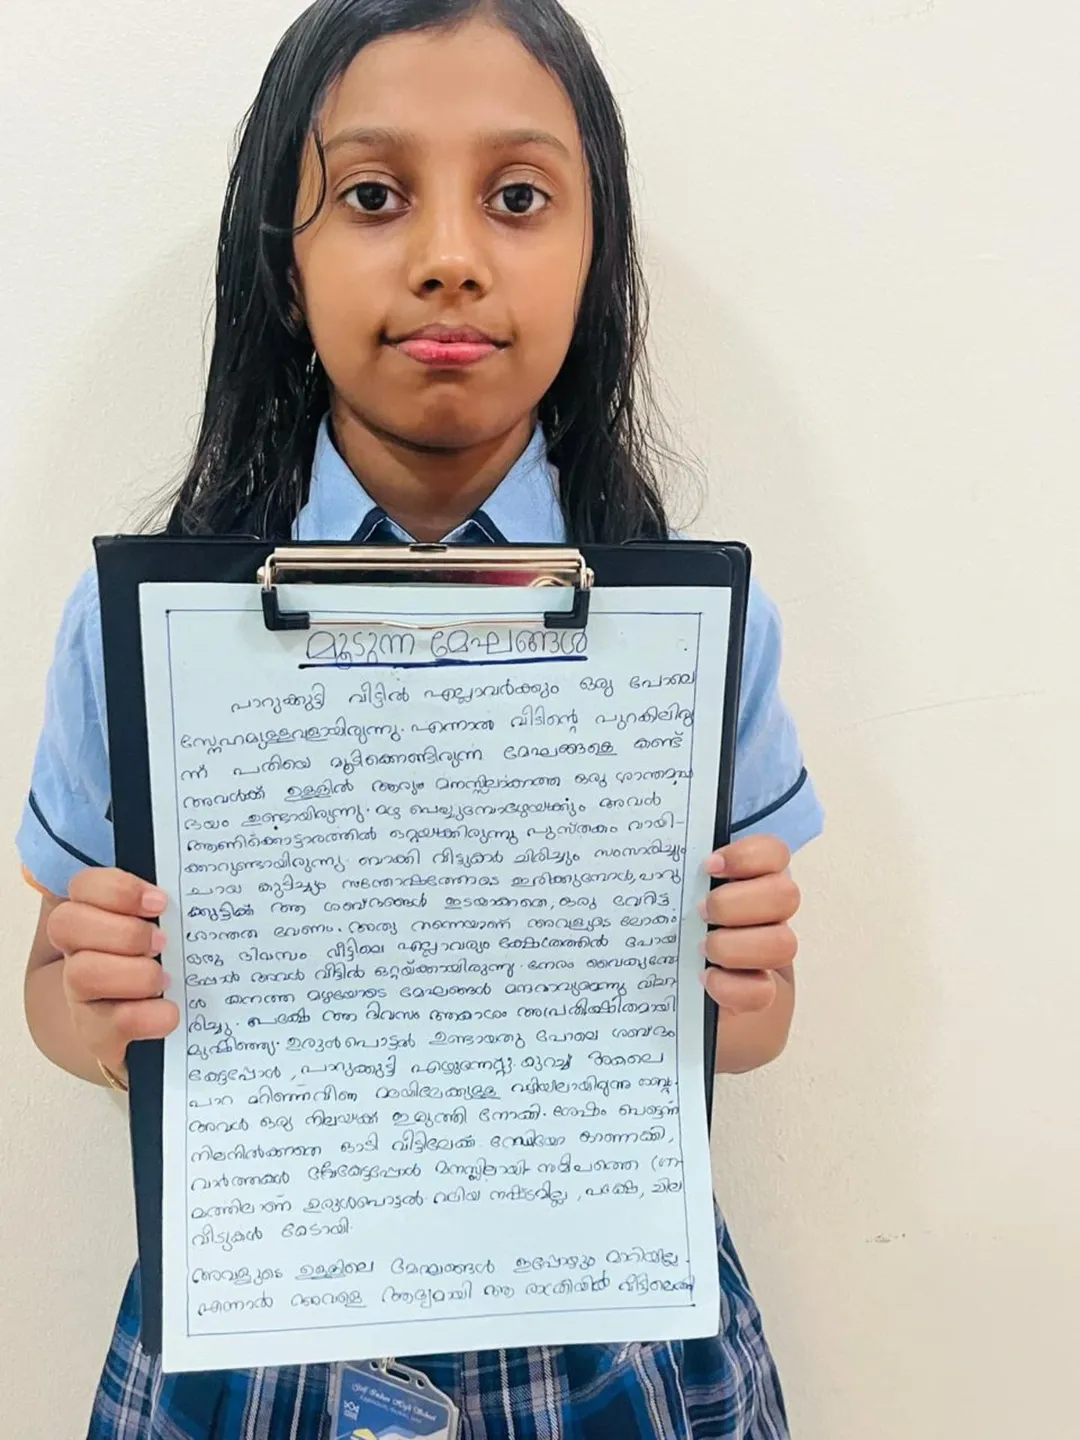 മൂടുന്ന മേഘങ്ങൾ
പാറുക്കുട്ടി വീട്ടിൽ എല്ലാവർക്കും ഒരു പോലെ
സ്നേഹമുള്ളവളായിരുന്നു. എന്നാൽ വീടിന്റെ പുറകിലിരു
ന്ന് പതിയെ മൂടിക്കൊണ്ടിരുന്ന മേഘങ്ങളെ കണ്ട്
അവൾക്ക് ഉള്ളിൽ ആരും മനസ്സിലാക്കാത്ത ഒരു ശാന്തമായ
ഭയം ഉണ്ടായിരുന്നു. മഴ പെയ്യുമ്പോഴേയ്ക്കും അവൾ
ആണിക്കൊട്ടാരത്തിൽ ഒറ്റയ്ക്കിരുന്നു പുസ്തകം വായി-
ക്കാറുണ്ടായിരുന്നു. ബാക്കി വീട്ടുകാർ ചിരിച്ചും സംസാരിച്ചും
ചായ കുടിച്ചും സന്തോഷത്തോടെ ഇരിക്കുമ്പോൾ, പാറു
ക്കുട്ടിക്ക് ആ ശബ്ദങ്ങൾ ഇടയാക്കാതെ, ഒരു വേറിട്ട
ശാന്തത വേണം. അതു തന്നെയാണ് അവളുടെ ലോകം.
ഒരു ദിവസം വീട്ടിലെ എല്ലാവരും ക്ഷേത്രത്തിൽ പോയ
പ്പോൾ അവൾ വീട്ടിൽ ഒറ്റയ്ക്കായിരുന്നു. നേരം വൈകുമ്പോ
ൾ കനത്ത മഴയോടെ മേഘങ്ങൾ മന്ദമാവുമെന്നു വിചാ
രിച്ചു. പക്ഷേ ആ ദിവസം ആകാശം അപ്രതീക്ഷിതമായി
മുഷിഞ്ഞു. ഉരുൾപൊട്ടൽ ഉണ്ടായതു പോലെ ശബ്ദം
കേട്ടപ്പോൾ, പാറുക്കുട്ടി എഴുന്നേറ്റു. കുറച്ച് അകലെ
പാറ മറിഞ്ഞ് വീണ മലയിലേക്കുള്ള വഴിയിലായിരുന്നു
അവൾ ഒരു നിലയ്ക്ക് ഇരുത്തി നോക്കി. ശേഷം പെട്ടെന്ന്
നിലനിൽക്കാതെ ഓടി വീട്ടിലേക്ക്. റേഡിയോ ഓണാക്കി,
വാർത്തകൾ കേട്ടപ്പോൾ മനസ്സിലായി- സമീപത്തെ ഗ്രാ
മത്തിലാണ് ഉരുൾപൊട്ടൽ. വലിയ നഷ്ടമില്ല, പക്ഷേ, ചില
വീടുകൾ കേടായി.
അവളുടെ ഉള്ളിലെ മേഘങ്ങൾ ഇപ്പോഴും മാറിയില്ല.
എന്നാൽ അവളെ ആദ്യമായി ആ രാത്രിയിൽ വീട്ടിലെത്തി
High School